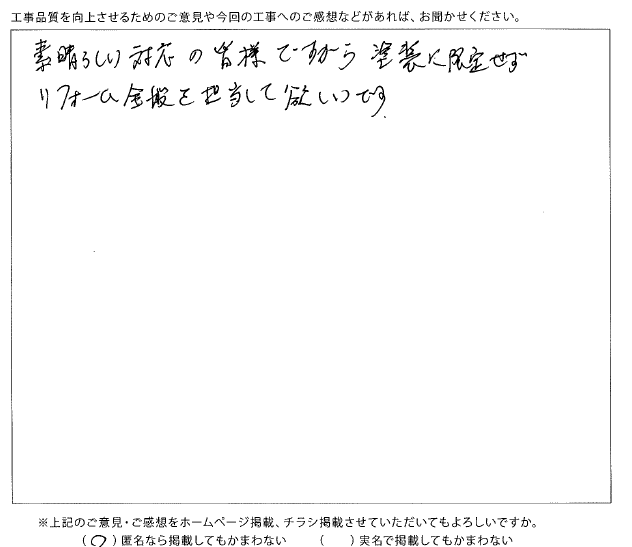 工事品質を向上させるためのご意見や今回の工事へのご感想などがあれば、お聞かせください。
素晴らしい対応の皆様ですから塗装に限定せず
リフォーム全般を担当して欲しいです
※上記のご意見・ご感想をホームページ掲載、チラシ掲載させていただいてもよろしいですか。
(○)匿名なら掲載してもかまわない ( )実名で掲載してもかまわない